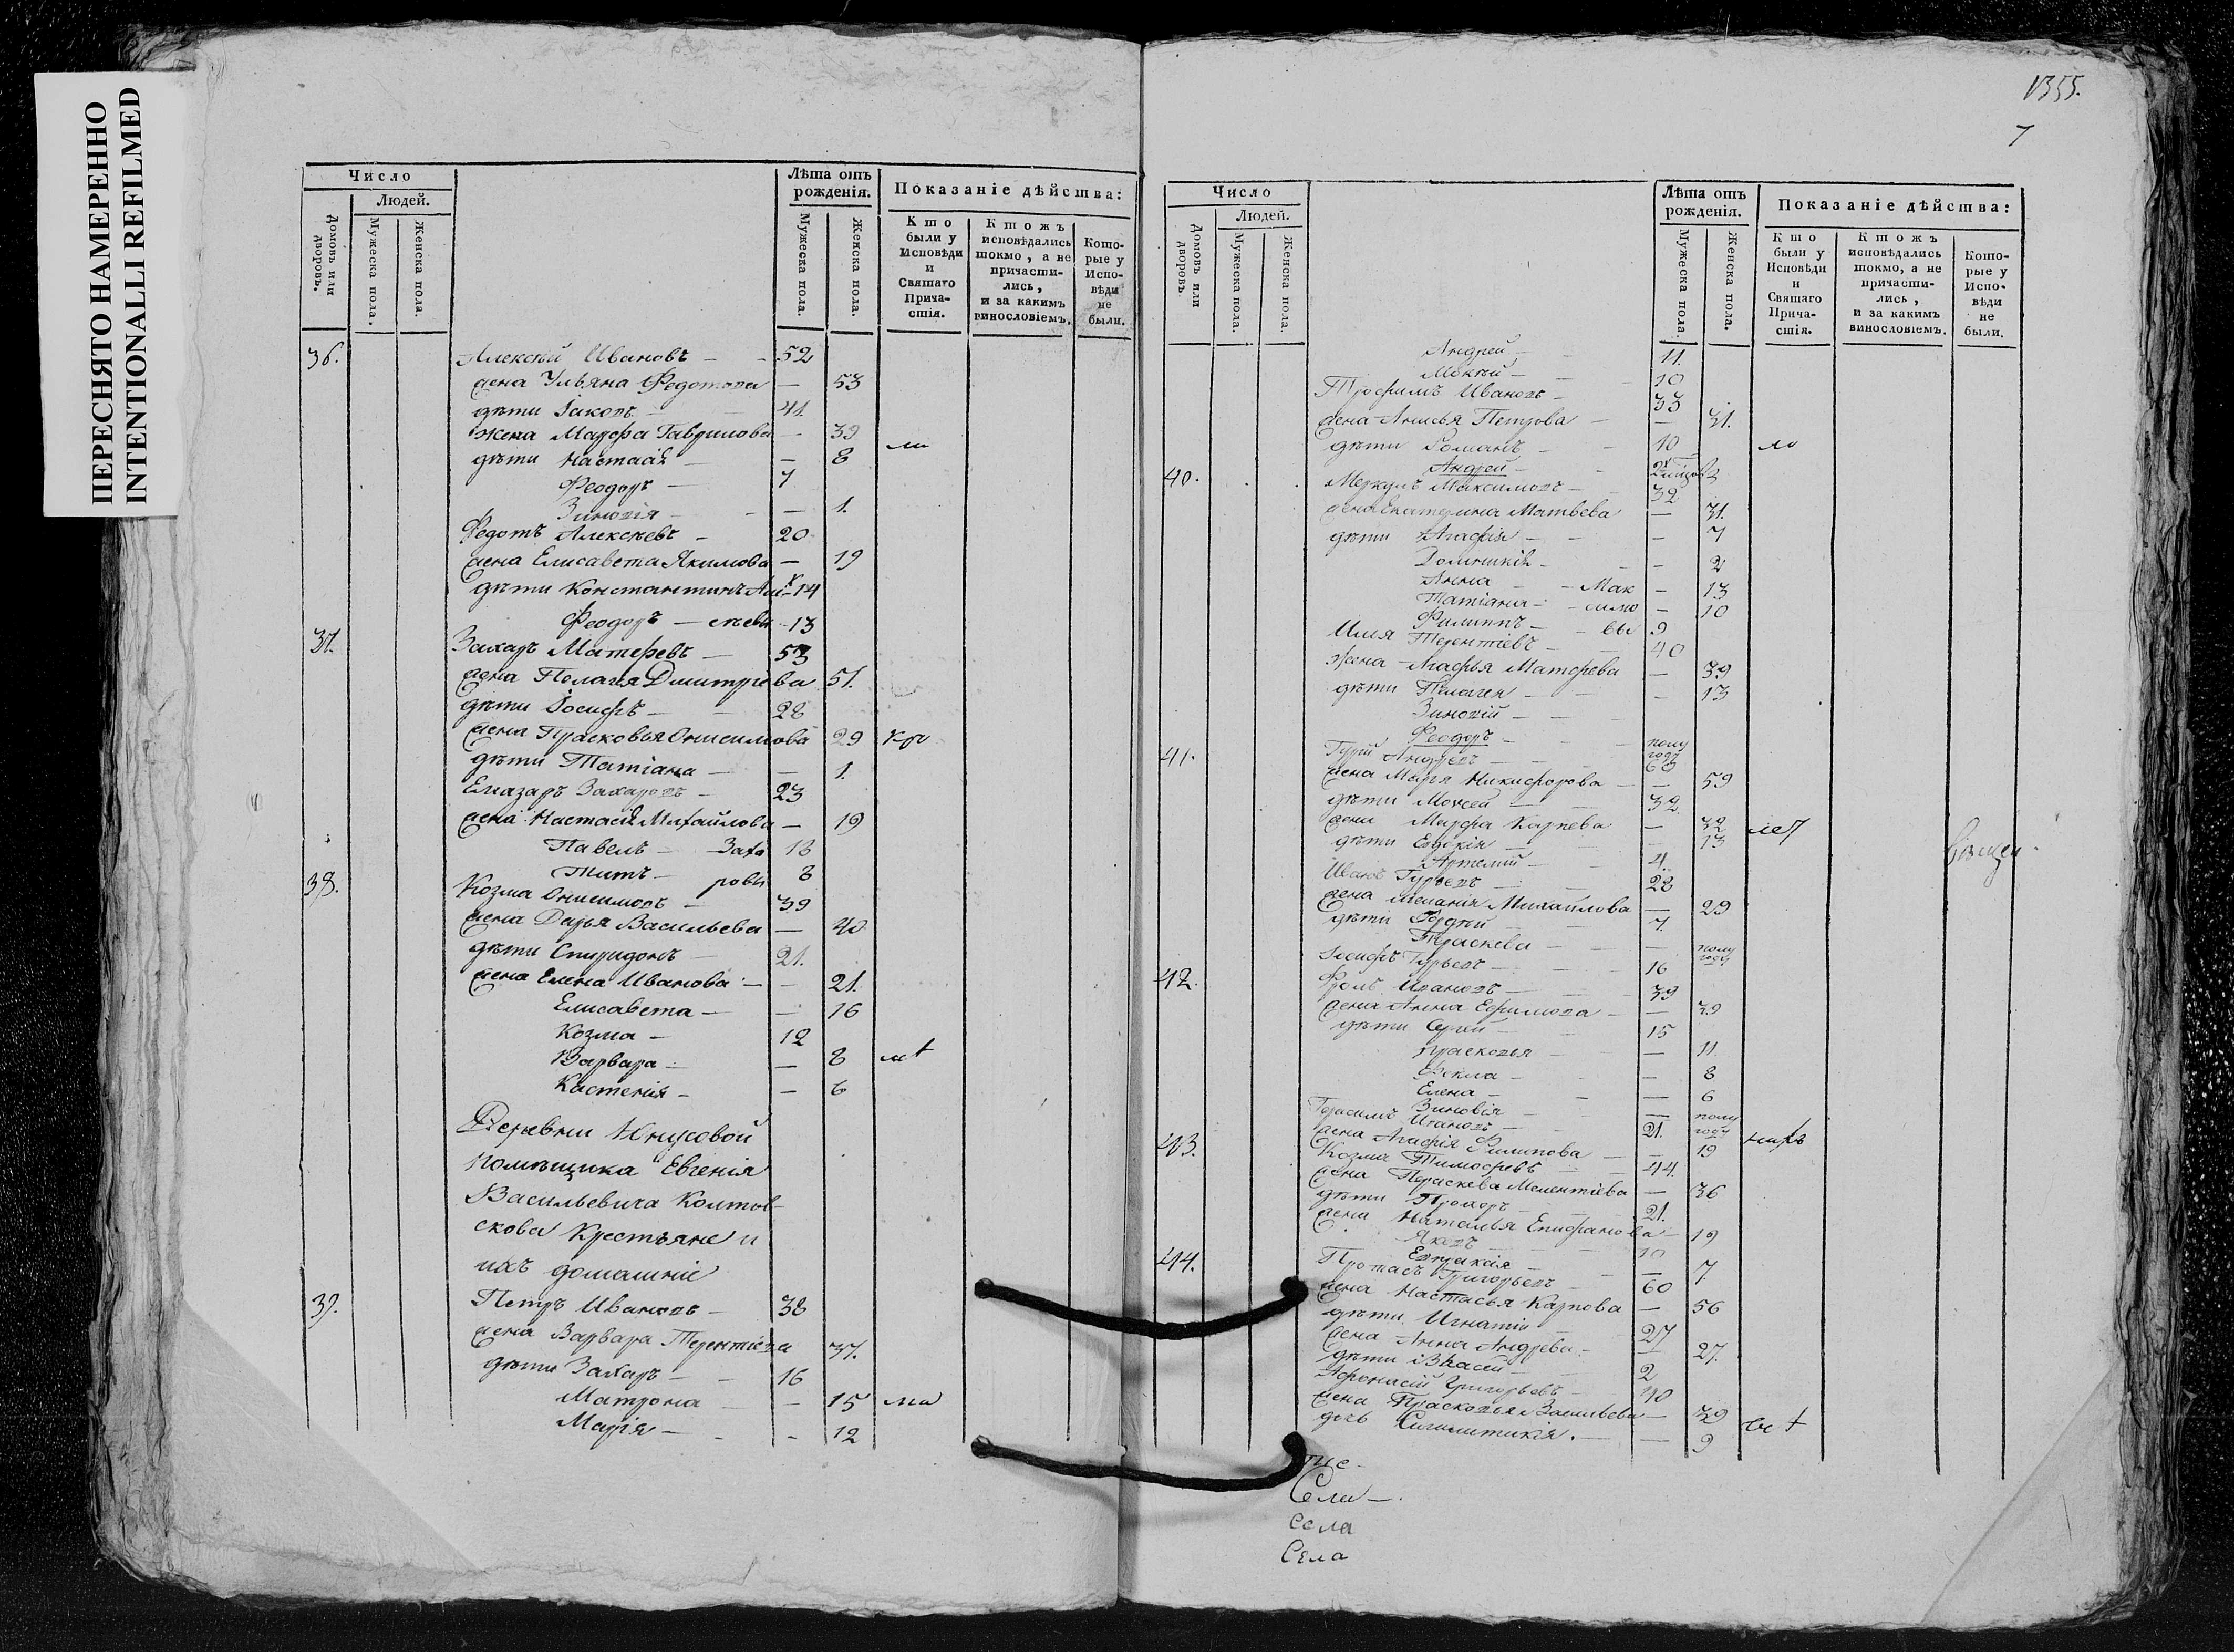 ПЕРЕСНЯТО НАМЕРЕННО
INTENTIONALLI REFILMED
Число
Людей.
Домовъ или дворовъ.
Мужеска пола.
Женска пола.
Лѣта отъ рожденія.
Мужеска пола.
Женска пола.
Показаніе дѣйства:
Кто были у Исповѣди и Святаго Причастія.
Ктожъ исповѣдались токмо, а не причастились, и за какимъ винословіемъ.
Которые у Исповѣди не были.
36. Алексѣй Ивановъ — 52
жена Ульяна Федотова — 53
дѣти Іаковъ — 41
жена Марфа Гаврилова — 39
дѣти Настасія — 8
Феодоръ — 7
Зиновія — 1
Федотъ Алексѣевъ — 20
жена Елисавета Якимова — 19
дѣти Константинъ 14
Феодоръ — 13
37. Захаръ Матфевъ — 53
жена Пелагея Дмитріева 51.
дѣти Іосифъ — 28
жена Прасковья Онисимова 29
дѣти Татіана — 1
Елеазаръ Захаровъ — 23
жена Настасія Михайлова — 19
Павелъ — Заха 18
Титъ — ровы 8
38. Козма Онисимовъ — 39
жена Дарья Васильева — 40
дѣти Спиридонъ — 21.
жена Елена Иванова — 21.
Елисавета — 16
Козма — 12
Варвара — 8
Ксстенія — 6
Деревни Юнусовой
помѣщика Евгенія
Васильевича Колтов-
скова Крестьяне и
ихъ домашніе
39. Петръ Ивановъ — 38
жена Варвара Терентіева 37.
дѣти Захаръ — 16
Матрона — 15
Марія — 12
1355.
7
Число
Людей.
Домовъ или дворовъ.
Мужеска пола.
Женска пола.
Лѣта отъ рожденія.
Мужеска пола.
Женска пола.
Показаніе дѣйства:
Кто были у Исповѣди и Святаго Причастія.
Ктожъ исповѣдались токмо, а не причастились, и за какимъ винословіемъ.
Которые у Исповѣди не были.
Андрей — 11
Мокѣй — 10
Трофимъ Ивановъ — 33
жена Анисья Петрова — 31.
дѣти Романъ — 10
Андрей —
40. Меркулъ Максимовъ — 32
жена Екатерина Матвѣева — 31.
дѣти Агафія — 7
Домникія — 2
Анна — Мак — 13
Татіана — симо — 10
Филиппъ — вы 9
Илия Терентіевъ — 40
жена Агафья Матфева — 39
дѣти Пелагея — 13
Зиновій —
Феодоръ — полугода
41. Гурій Андреевъ — 60
жена Марья Никифорова — 59
дѣти Моисей — 32
жена Марфа Карпева — 32
дѣти Евдокія — 13
Артемій — 4.
Иванъ Гурьевъ — 28
жена Меланія Михайлова — 29
дѣти Гордѣй — 7.
Параскева — полугоду
Іосифъ Гурьевъ — 16
42. Фролъ Ивановъ — 39
жена Анна Ефимова — 39
дѣти Сергей — 15
Прасковья — 11
Фекла — 8
Елена — 6
Зиновія — полугоду
Герасимъ Ивановъ — 21.
жена Агафія Филипова — 19
43. Козма Тимофеевъ — 44.
жена Параскева Мелентіева — 36
дѣти Прохоръ — 21.
жена Наталья Епифанова — 19
Яковъ — 10
Евпракія — 7.
44. Протасъ Григорьевъ — 60
жена Настасья Карпова — 56
дѣти Игнатій — 27
жена Анна Андрева — 27.
дѣти Власій — 2
Афонасій Григорьевъ — 40
жена Прасковья Васильева — 39
дочь Силлитикія. — 9
Села —
села
Села